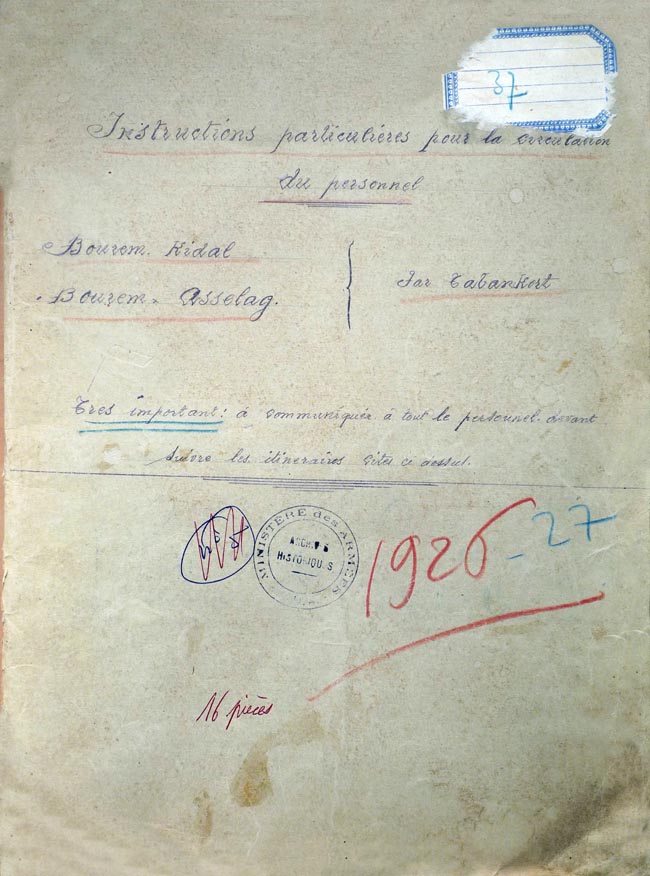 37
Instructions particulières pour la circulation
du personnel
Bourem. Kidal
Bourem. Asselag.
Par Tabankort
Tres important: à communiquer à tout le personnel devant
suivre les itineraires cités ci dessus.
MINISTÈRE des ARMÉES
ARCHIVES
HISTORIQUES
1926-27
16 pièces